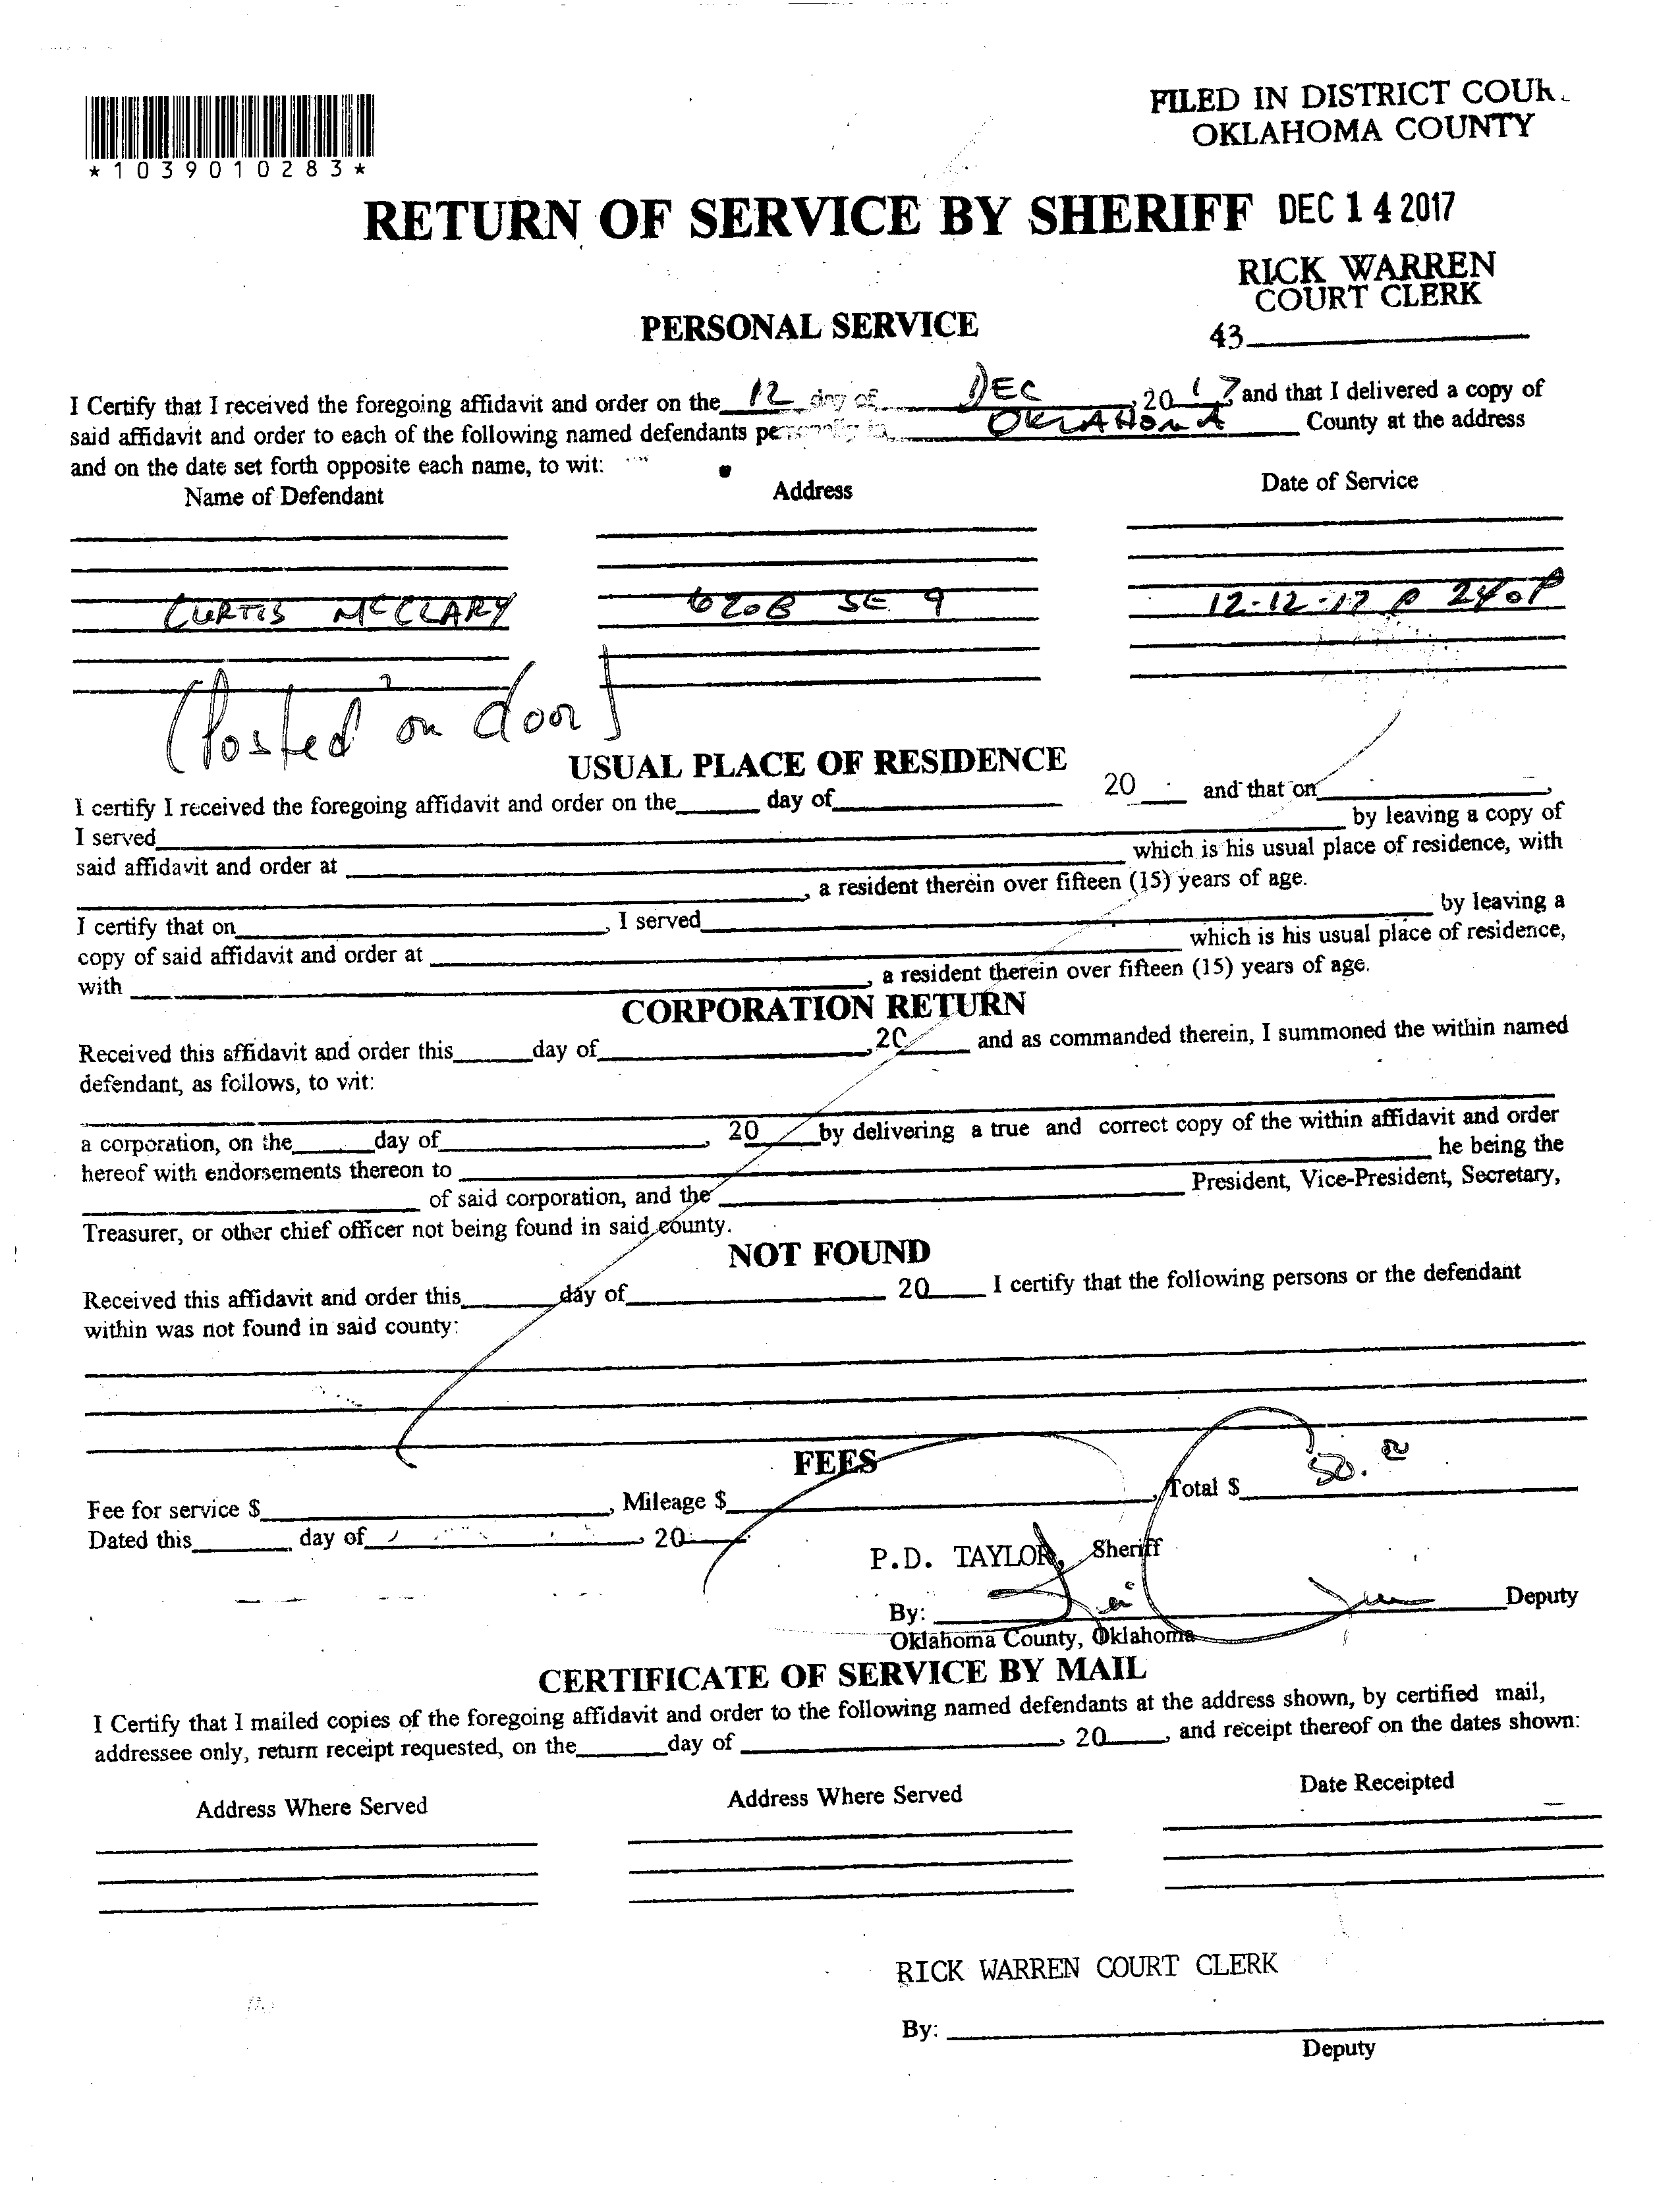 FILED IN DISTRICT COUR
OKLAHOMA COUNTY
*1039010283*
RETURN OF SERVICE BY SHERIFF DEC 14 2017
RICK WARREN
COURT CLERK
PERSONAL SERVICE
43
I Certify that I received the foregoing affidavit and order on the 12 day of DEC, 2017 and that I delivered a copy of
said affidavit and order to each of the following named defendants personally in OKLAHOMA County at the address
and on the date set forth opposite each name, to wit:
Name of Defendant Address Date of Service
CURTIS McCLARY 620B SE 9 12-12-17 @ 240P
(Posted on door)
USUAL PLACE OF RESIDENCE
I certify I received the foregoing affidavit and order on the day of 20 and that on ,
I served by leaving a copy of
said affidavit and order at which is his usual place of residence, with
, a resident therein over fifteen (15) years of age.
I certify that on , I served by leaving a
copy of said affidavit and order at which is his usual place of residence,
with , a resident therein over fifteen (15) years of age.
CORPORATION RETURN
Received this affidavit and order this day of , 20 and as commanded therein, I summoned the within named
defendant, as follows, to wit:
a corporation, on the day of , 20 by delivering a true and correct copy of the within affidavit and order
hereof with endorsements thereon to he being the
of said corporation, and the President, Vice-President, Secretary,
Treasurer, or other chief officer not being found in said county.
NOT FOUND
Received this affidavit and order this day of 20 I certify that the following persons or the defendant
within was not found in said county:
FEES
Fee for service $ , Mileage $ , Total $ 50.
Dated this day of , 20
P.D. TAYLOR, Sheriff
By: Deputy
Oklahoma County, Oklahoma
CERTIFICATE OF SERVICE BY MAIL
I Certify that I mailed copies of the foregoing affidavit and order to the following named defendants at the address shown, by certified mail,
addressee only, return receipt requested, on the day of , 20 , and receipt thereof on the dates shown:
Address Where Served Address Where Served Date Receipted
RICK WARREN COURT CLERK
By:
Deputy